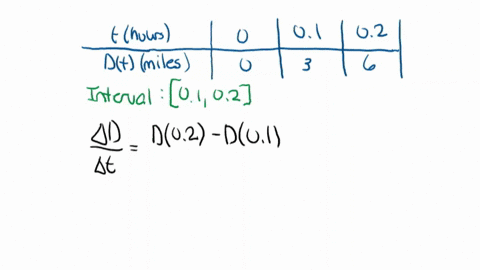 t (hours) 0 0.1 0.2
D(t) (miles) 0 3 6
Interval: [0.1, 0.2]
ΔD/Δt = D(0.2) - D(0.1)